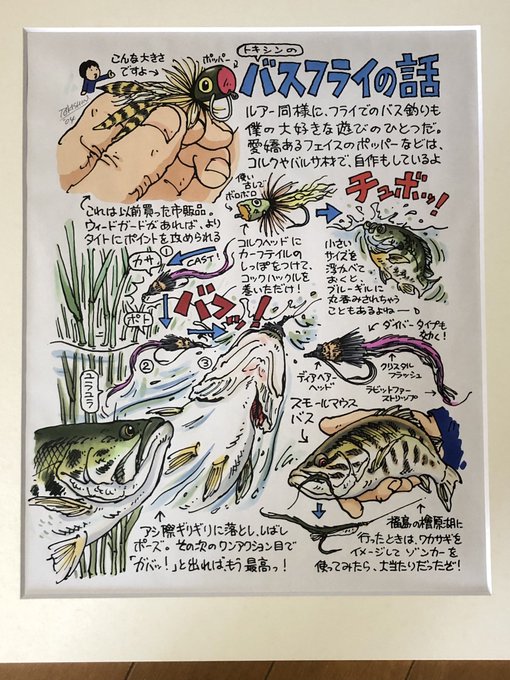 トキシンの
バスフライの話
こんな大きさ
ですよ→
ポッパー
'04
ルアー同様に、フライでのバス釣りも
僕の大好きな遊びのひとつだ。
愛嬌あるフェイスのポッパーなどは、
コルクやバルサ材で、自作もしているよ
これは以前買った市販品。
ウィードガードがあれば、より
タイトにポイントを攻められる
使い
古しで
ボロボロ
コルクヘッドに
カーフテイルの
しっぽをつけて、
コックハックルを
巻いただけ!
チュボッ!
小さい
サイズを
浮かべて
おくと、
ブルーギルに
丸呑みされちゃう
こともあるよね—
① CAST!
カサ
ポト
バフッ!
②
③
ユラユラ
ダイバータイプも
効く!
クリスタル
フラッシュ
ラビットファー
ストリップ
ディアヘアー
ヘッド
スモールマウス
バス
アシ際ギリギリに落とし、しばし
ポーズ。その次のワンアクション目で
「ガバッ!」と出ればもう最高っ!
福島の檜原湖に
行ったときは、ワカサギを
イメージしてゾンカーを
使ってみたら、大当たりだったぜ!